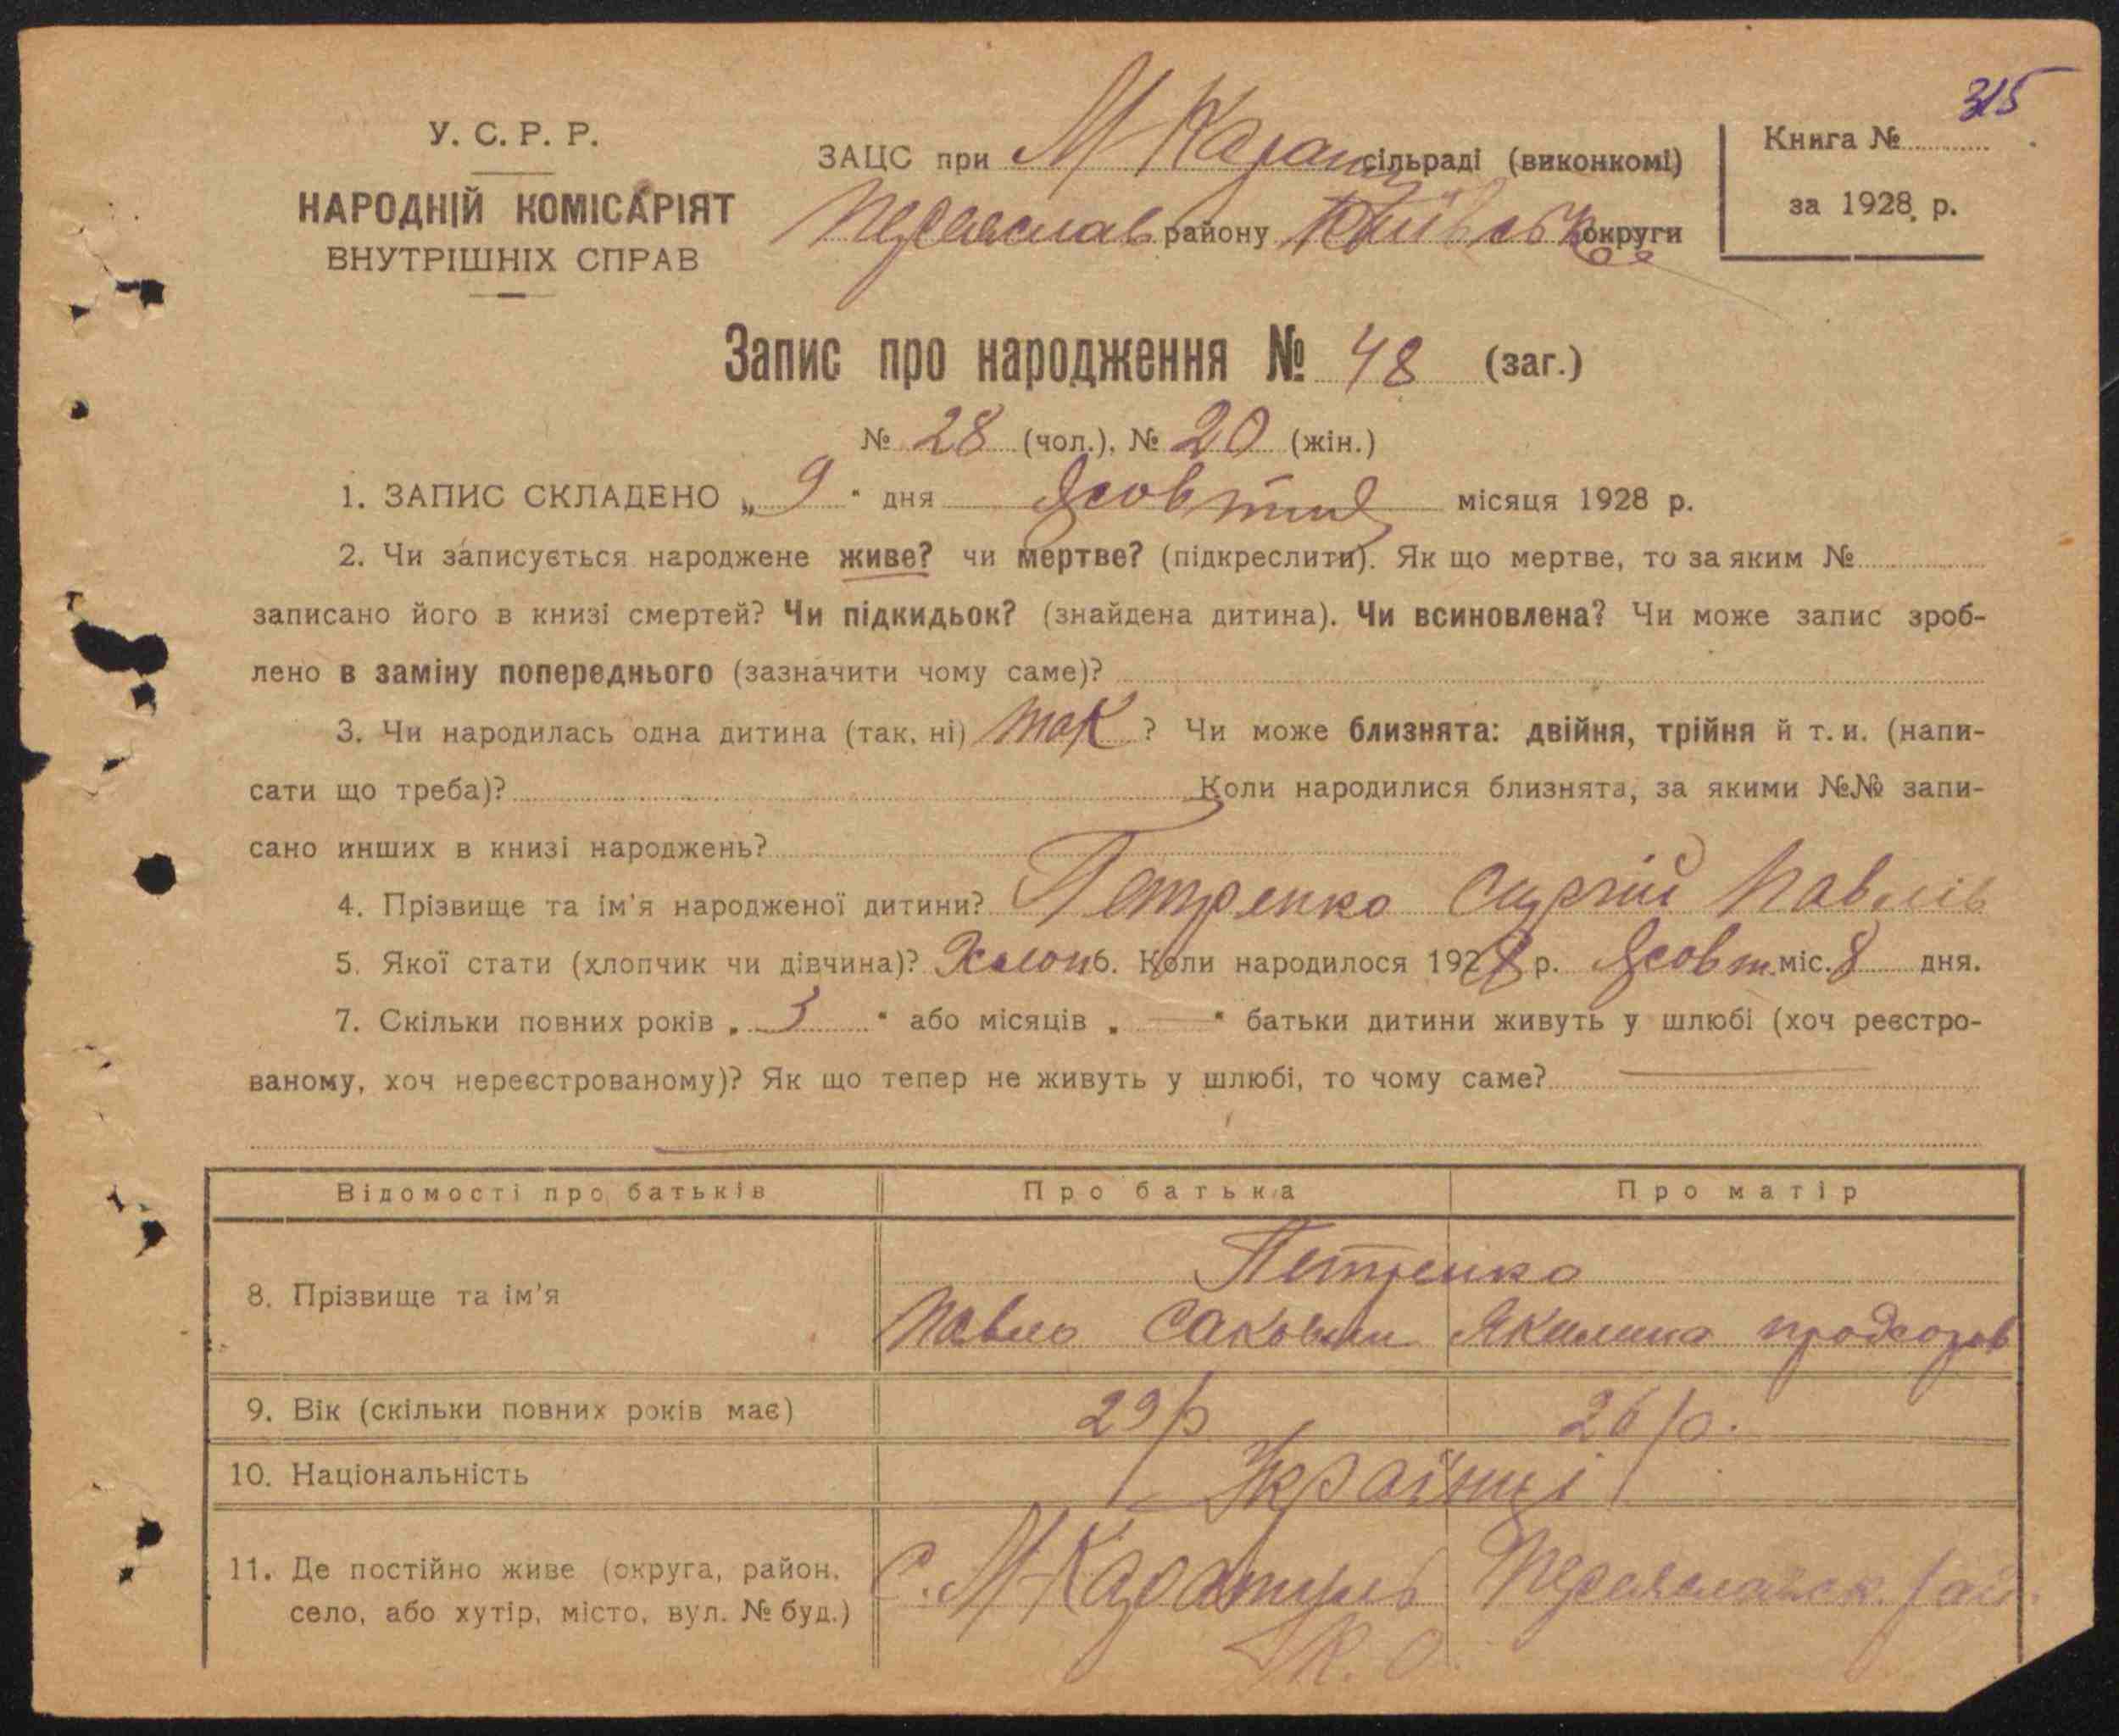 315
У. С. Р. Р.
НАРОДНІЙ КОМІСАРІЯТ
ВНУТРІШНІХ СПРАВ
ЗАЦС при М Карат сільраді (виконкомі)
Переяслав району Київської округи
Книга №
за 1928 р.
Запис про народження № 48 (заг.)
№ 28 (чол.), № 20 (жін.)
1. ЗАПИС СКЛАДЕНО „ 9 “ дня Жовтня місяця 1928 р.
2. Чи записується народжене живе? чи мертве? (підкреслити). Як що мертве, то за яким №
записано його в книзі смертей? Чи підкидьок? (знайдена дитина). Чи всиновлена? Чи може запис зроб-
лено в заміну попереднього (зазначити чому саме)?
3. Чи народилась одна дитина (так, ні) так ? Чи може близнята: двійня, трійня й т. и. (напи-
сати що треба)? Коли народилися близнята, за якими №№ запи-
сано инших в книзі народжень?
4. Прізвище та ім'я народженої дитини? Петренко Сергій Павлів
5. Якої стати (хлопчик чи дівчина)? Хлоп 6. Коли народилося 1928 р. Жовт. міс. 8 дня.
7. Скільки повних років „ 3 “ або місяців „ — “ батьки дитини живуть у шлюбі (хоч реєстро-
ваному, хоч нереєстрованому)? Як що тепер не живуть у шлюбі, то чому саме?
Відомості про батьків Про батька Про матір
8. Прізвище та ім'я Петренко
Павло Якилина
9. Вік (скільки повних років має) 29 р 26 р.
10. Національність Українці
11. Де постійно живе (округа, район, село, або хутір, місто, вул. № буд.) С. М Каратуль Переяславск. рай.
К. О.